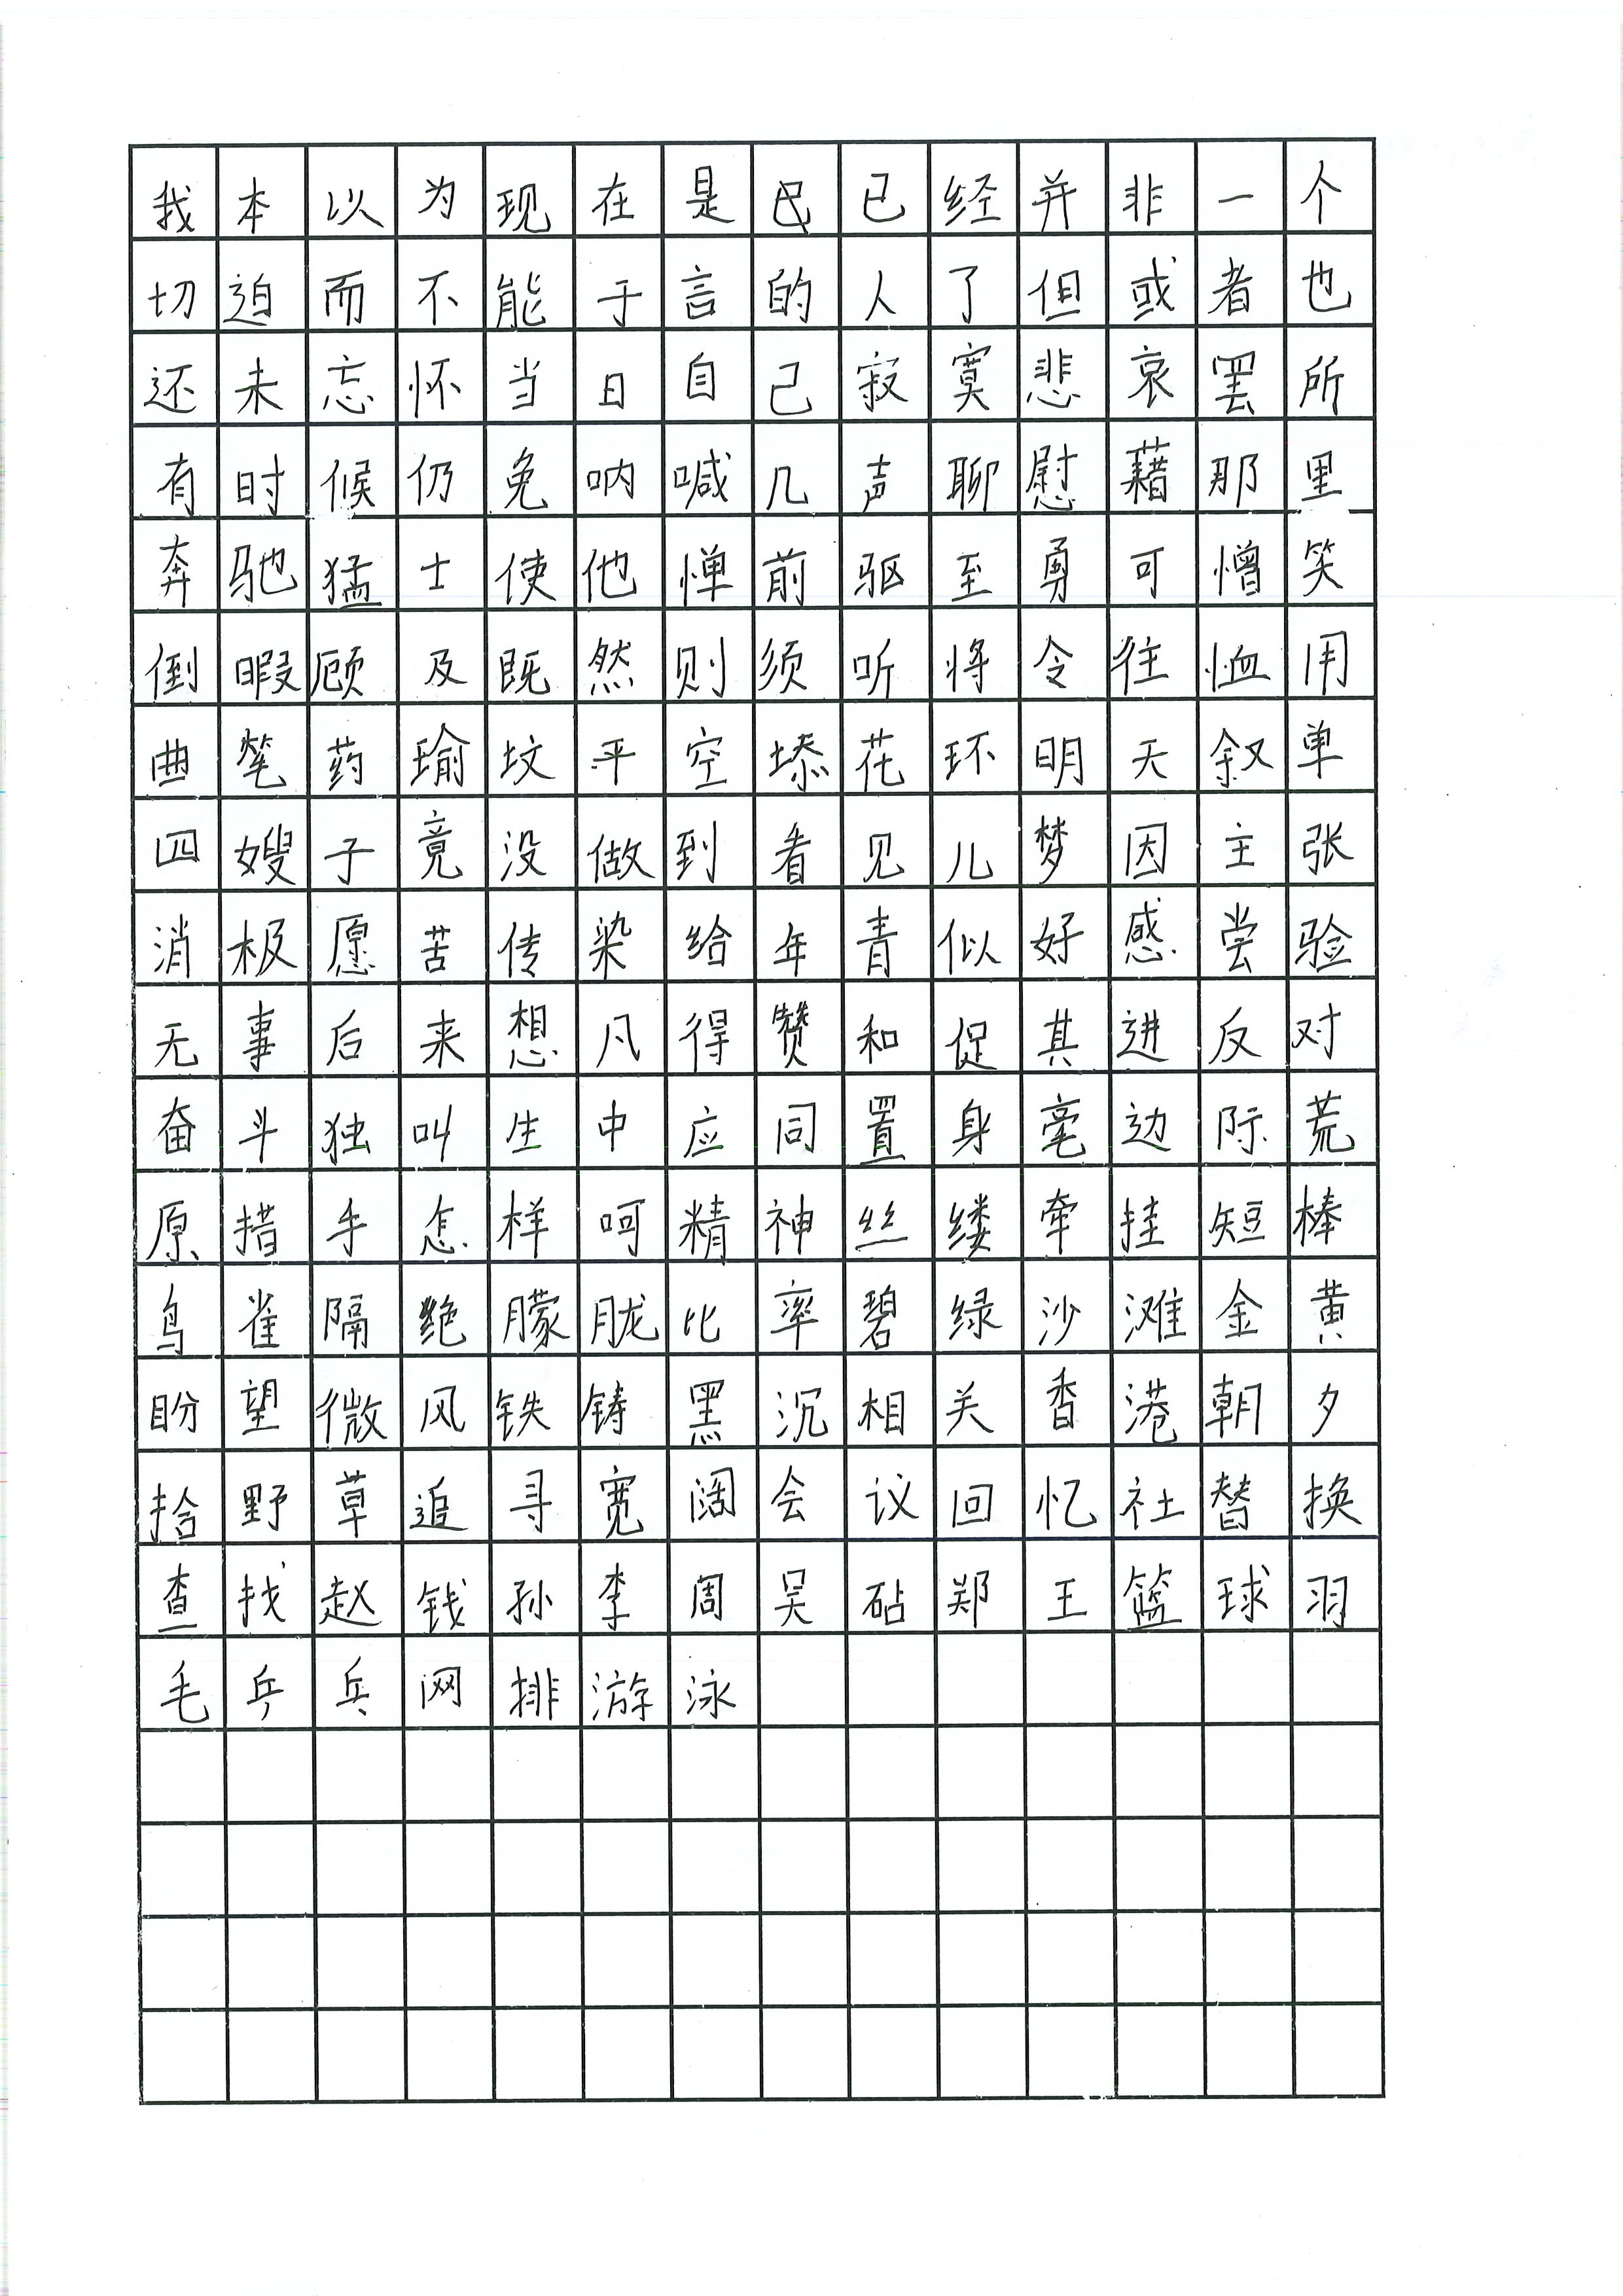 我本以为现在是民已经并非一个
切迫而不能于言的人了但或者也
还未忘怀当日自己寂寞悲哀罢所
有时候仍免呐喊几声聊慰藉那里
奔驰猛士使他惮前驱至勇可憎笑
倒暇顾及既然则须听将令往恤用
曲笔药瑜坟平空添花环明天叙单
四嫂子竟没做到看见儿梦因主张
消极愿苦传染给年青似好感尝验
无事后来想凡得赞和促其进反对
奋斗独叫生中应同置身毫边际荒
原措手怎样呵精神丝缕牵挂短棒
鸟雀隔绝朦胧比率碧绿沙滩金黄
盼望微风铁铸黑沉相关香港朝夕
拾野草追寻宽阔会议回忆社替换
查找赵钱孙李周吴砧郑王篮球羽
毛乒乓网排游泳